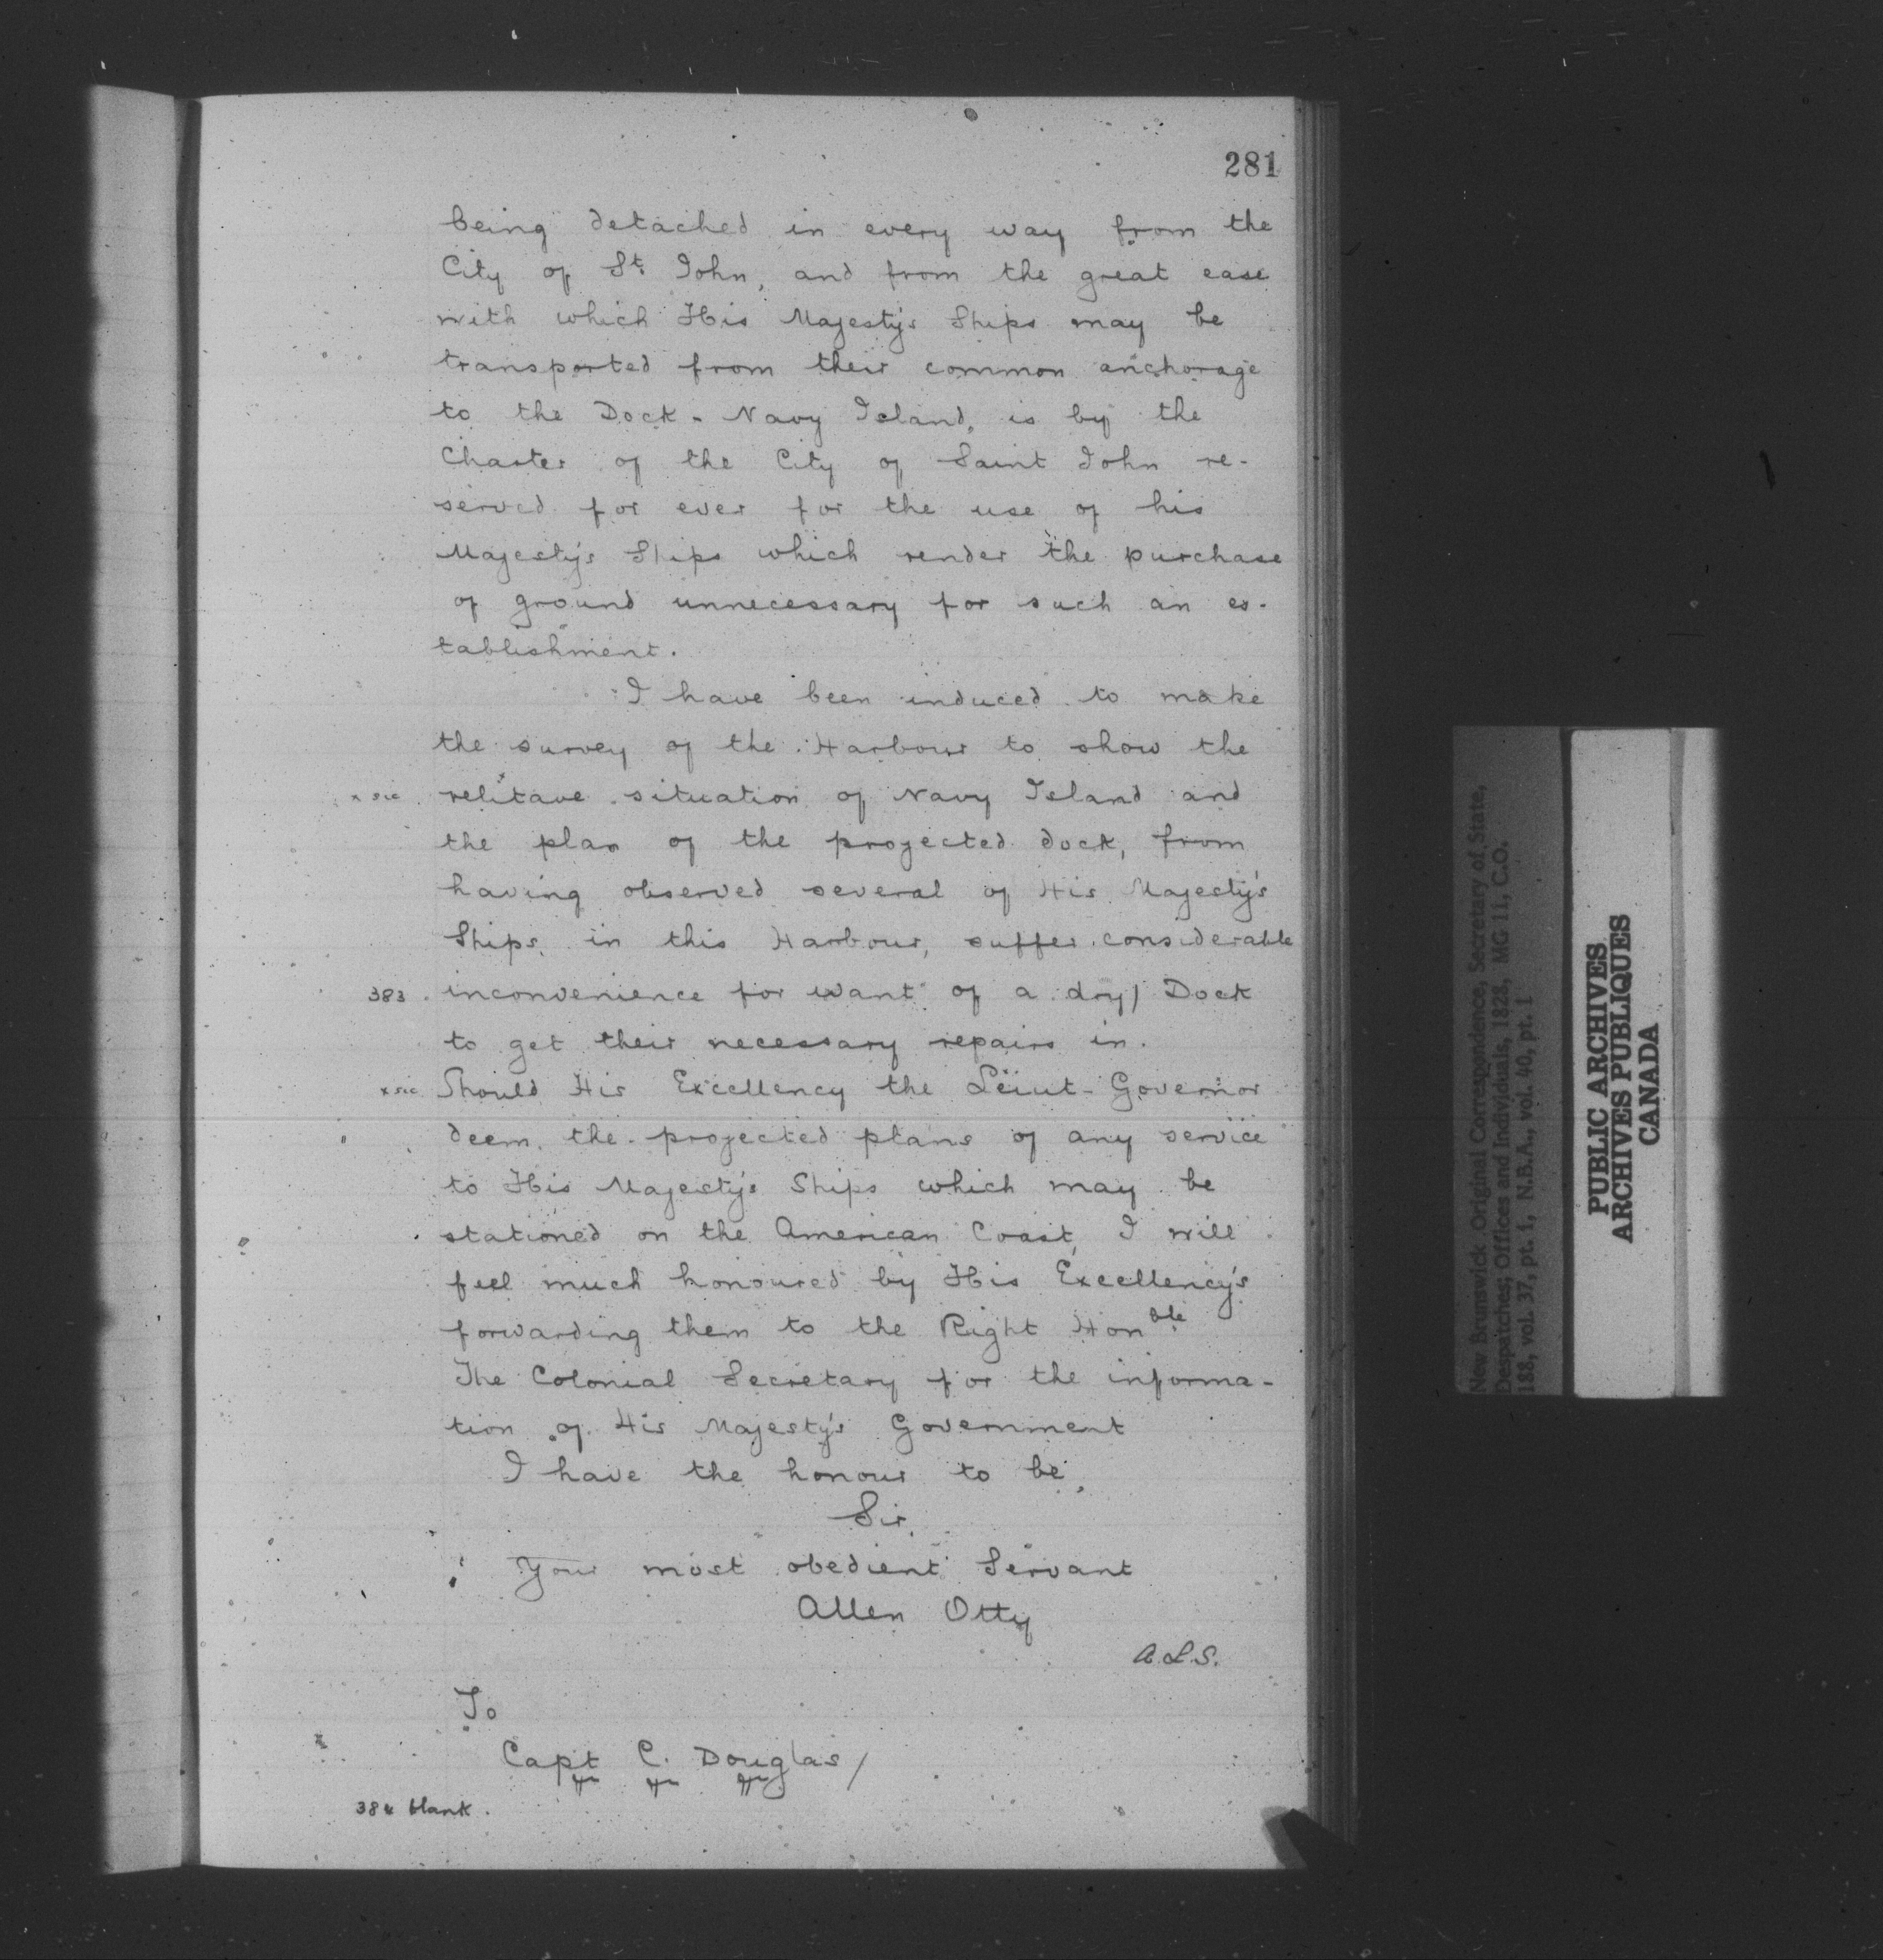 281
being detached in every way from the
City of St. John, and from the great ease
with which His Majesty's Ships may be
transported from their common anchorage
to the Dock - Navy Island, is by the
Charter of the City of Saint John re-
served for ever for the use of his
Majesty's Ships which render the purchase
of ground unnecessary for such an es-
tablishment.
I have been induced to make
the survey of the Harbour to show the
x sic relitave x situation of Navy Island and
the plan of the projected dock, from
having observed several of His Majesty's
Ships in this Harbour, suffer considerable
383. inconvenience for want of a dry/ Dock
to get their necessary repairs in.
x sic Should His Excellency the Leiut - Governor
deem the projected plans of any service
to His Majesty's Ships which may be
stationed on the American Coast, I will
feel much honoured by His Excellency's
forwarding them to the Right Honble
The Colonial Secretary for the informa-
tion of His Majesty's Government
I have the honour to be,
Sir,
Your most obedient Servant
Allen Otty
A.L.S.
To
Capt C. Douglas/
384 blank.
New Brunswick Original Correspondence, Secretary of State,
Despatches; Offices and Individuals, 1828, MG 11, C.O.
188, vol. 37, pt. 1, N.B.A., vol. 40, pt. 1
PUBLIC ARCHIVES
ARCHIVES PUBLIQUES
CANADA